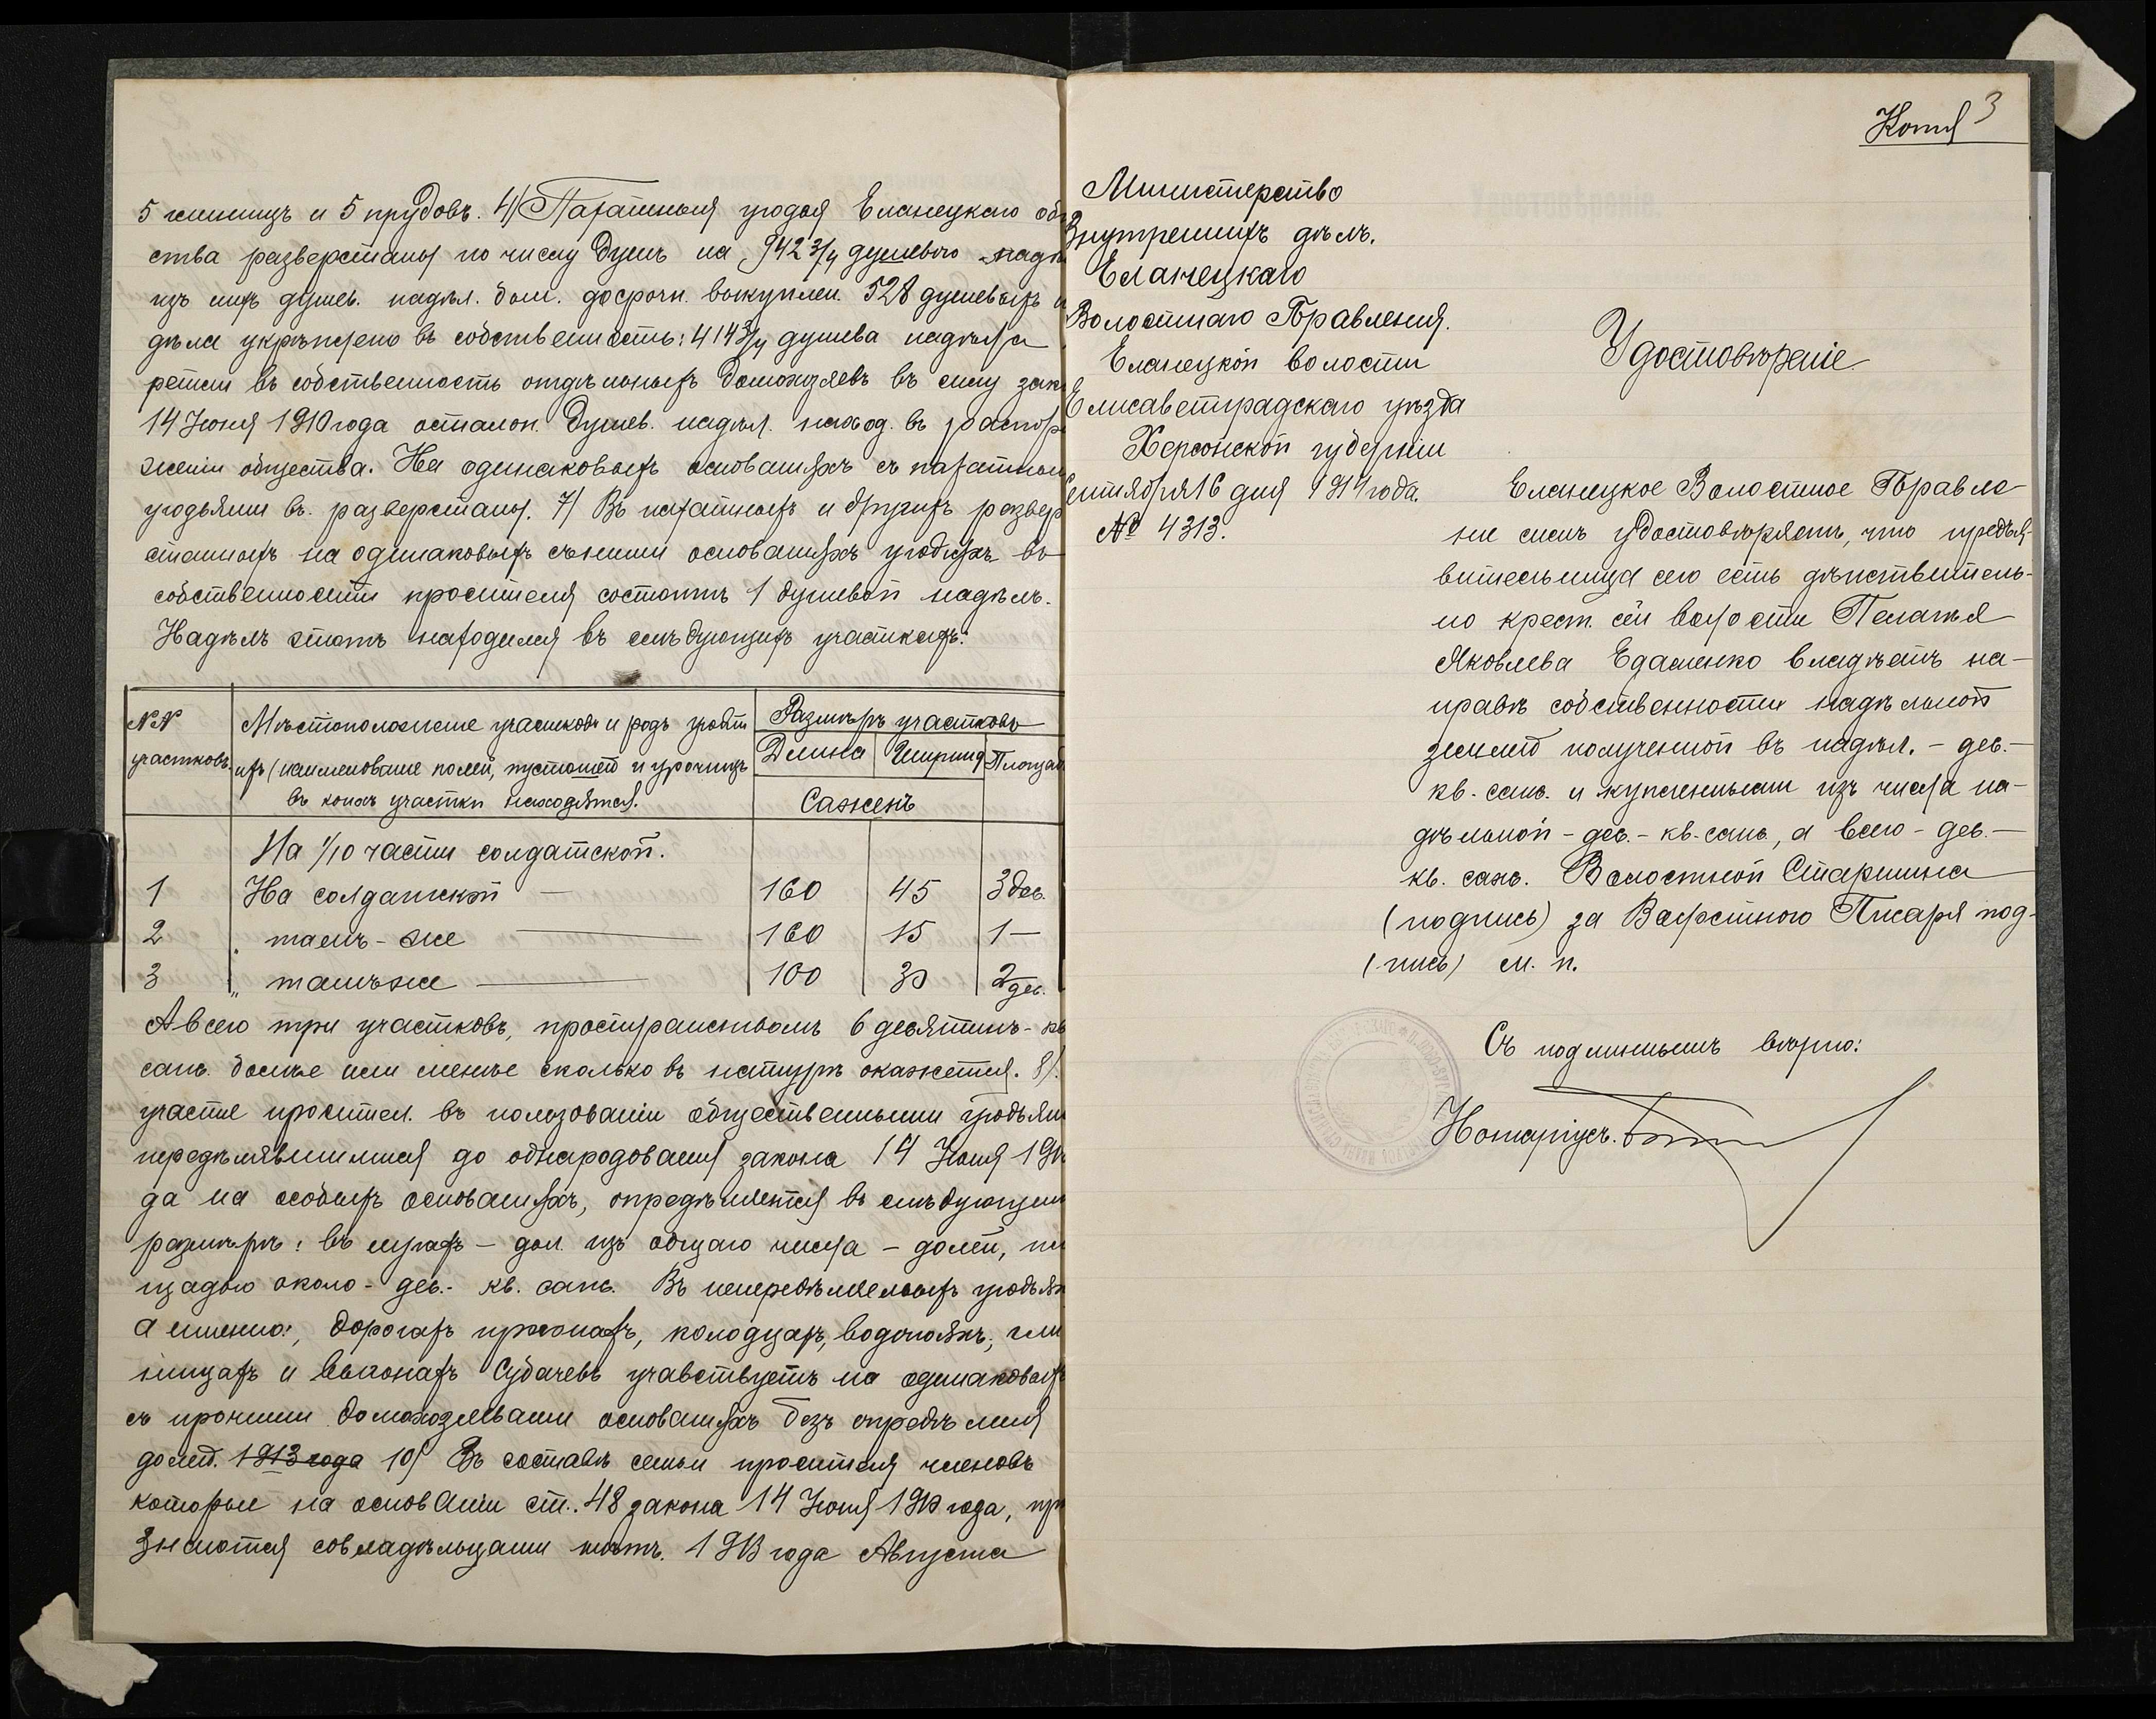 5 глинищъ и 5 прудовъ. 4/ Пахатныя угодья Еланецкаго общ
ства разверстаны по числу душъ на 942 3/4 душевого надѣ
изъ нихъ душев. надѣл. был. досрочн. выкуплен. 528 душевыхъ н
дѣла укрѣплено въ собственность: 414 3/4 душева надѣла
ретен въ собственность отдѣльныхъ домохозяевъ въ силу зак
14 Іюня 1910 года осталон. душев. надѣл. наход. въ распоря
женіи общества. На одинаковыхъ основаніяхъ съ пахатным
угодьями въ. разверстаны. 7/ Въ пахатныхъ и другихъ развер
станныхъ на одинаковыхъ съ ними основаніяхъ угодьяхъ въ
собственности просителя состоитъ 1 душевой надѣлъ.
Надѣлъ этотъ находится въ слѣдующихъ участкахъ:
№№ участковъ
Мѣстоположеніе участковъ и родъ угодій
ихъ (наименованіе полей, пустошей и урочищъ
въ коихъ участки находятся).
Размѣръ участковъ
Длина Ширина Площад
Саженъ
На 1/10 части солдатской.
1 На солдатской — 160 45 3 дес.
2 " тамъ-же — 160 15 1 —
3 " тамъ же — 100 30 2 дес.
А всего три участковъ, пространствомъ 6 десятинъ - кв
саж. болѣе или менѣе сколько въ натурѣ окажется. 8/.
участіе просител. въ пользованіи общественными угодьями
передѣлявшимися до обнародованія закона 14 Іюня 1910
да на особыхъ основаніяхъ, опредѣляется въ слѣдующем
размѣрѣ: въ лугахъ — дол. изъ общаго числа — долей, пл
щадью около - дес. - кв. саж. Въ непередѣляемыхъ угодьях
а именно:, дорогахъ прогонахъ, колодцахъ, водопояхъ, гли
нищахъ и выгонахъ Судачевъ учавствуетъ на одинаковыхъ
съ прочими домохозяевами основаніяхъ безъ опредѣленія
долей. 1913 года 10/ Въ составѣ семьи просителя членовъ
которые на основаніи ст. 48 закона 14 Іюня 1910 года, при
знаются совладѣльцами нѣтъ. 1913 года Августа
Копія 3
Министерство
Внутреннихъ дѣлъ.
Еланецкаго
Волостнаго Правленія.
Еланецкой волости
Елисаветградскаго уѣзда
Херсонской губерніи
Сентября 16 дня 1914 года.
№ 4313.
Удостовѣреніе
Еланецкое Волостное Правле-
ніе симъ удостовѣряетъ, что предъя-
вительница сего есть дѣйствитель-
но крест. сей волости Пелагія
Яковлева Едаменко владѣетъ на-
правѣ собственности надѣльной
землей полученной въ надѣл. - дес. -
кв. саж. и купленными изъ числа на-
дѣльной - дес. - кв. саж., а всего - дес. -
кв. саж. Волостной Старшина
(подпись) за Волостного Писаря под-
(пись) м. п.
Съ подлиннымъ вѣрно:
Нотаріусъ.